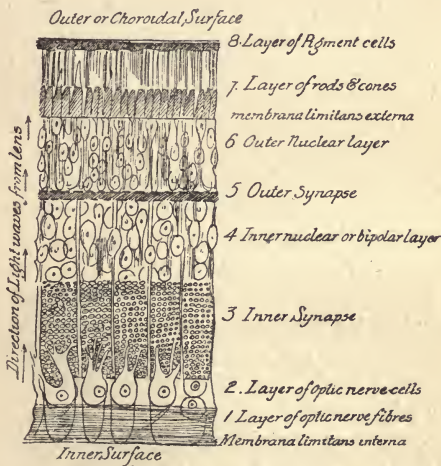 Outer or Choroidal, Surface
8. Layer of Pigment cells
7. Layer of rods & cones
membrana limitans externa
6 Outer Nuclear layer
5 Outer Synapse
4 Inner nuclear or bipolar layer
3 Inner Synapse
2. Layer of Optic nerve-cells
1 Layer of optic nerve fibres
Membrana limitans interna
Inner Surface
Direction of Light waves from lens